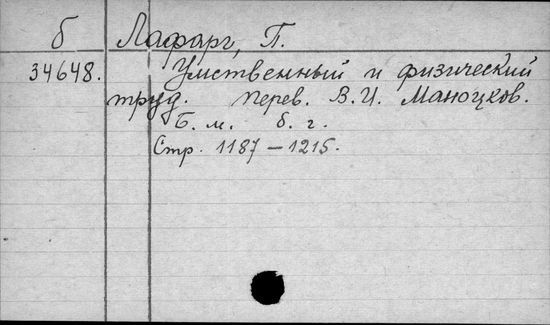 б Лафарг, П.
34648. Умственный и физический
труд. перев. В.И. Маноцков.
Б. м. б. г.
Стр. 1187 – 1215.